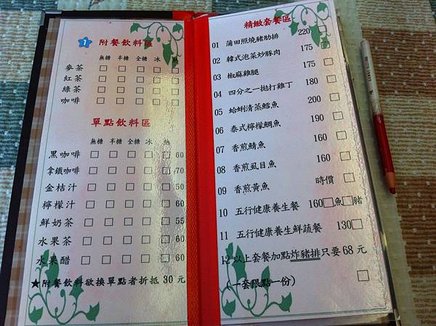 1 附餐飲料區
無糖 半糖 全糖 冰 熱
麥茶 □ □ □ □ □
紅茶 □ □ □ □ □
綠茶 □ □ □ □ □
咖啡 □ □ □ □ □
單點飲料區
無糖 半糖 全糖 冰 熱
黑咖啡 □ □ □ □ □ 60
拿鐵咖啡 □ □ □ □ □ 70
金桔汁 □ □ □ □ □ 60
檸檬汁 □ □ □ □ □ 60
鮮奶茶 □ □ □ □ □
水果茶 □ □ □ □ □
水果醋 □ □ □ □ □ 60
★附餐飲料欲換單點者折抵 30 元
精緻套餐區
01 蒲田照燒豬肋排 220
02 韓式泡菜炒豚肉 175 □
03 椒麻雞腿 180 □
04 四分之一拋打雞丁 180 □
05 蛤蜊清蒸鱈魚 200 □
06 泰式檸檬鯛魚 190 □
07 香煎鯖魚 160 □
08 香煎虱目魚 160 □
09 香煎黃魚 時價 □
10 五行健康養生餐 160 □魚□豬
11 五行健康養生鮮蔬餐 130□
12 以上套餐加點炸豬排只要 68 元
(一套限點一份) □